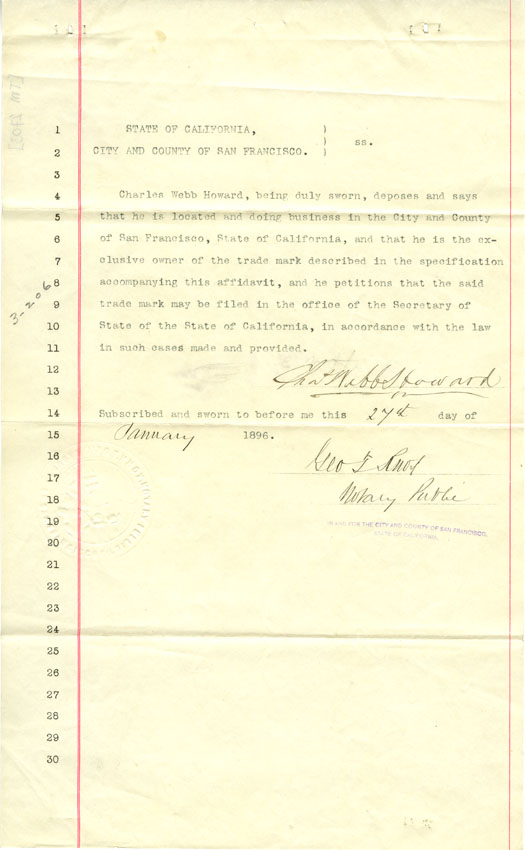 1 STATE OF CALIFORNIA, )
) ss.
2 CITY AND COUNTY OF SAN FRANCISCO. )
3
4 Charles Webb Howard, being duly sworn, deposes and says
5 that he is located and doing business in the City and County
6 of San Francisco, State of California, and that he is the ex-
7 clusive owner of the trade mark described in the specification
8 accompanying this affidavit, and he petitions that the said
9 trade mark may be filed in the office of the Secretary of
10 State of the State of California, in accordance with the law
11 in such cases made and provided.
3-206
12
Chas Webb Howard
13
14 Subscribed and sworn to before me this 27th day of
15 January 1896.
16 Geo T Knox
17
18 Notary Public
19 IN AND FOR THE CITY AND COUNTY OF SAN FRANCISCO,
STATE OF CALIFORNIA.
20
21
22
23
24
25
26
27
28
29
30